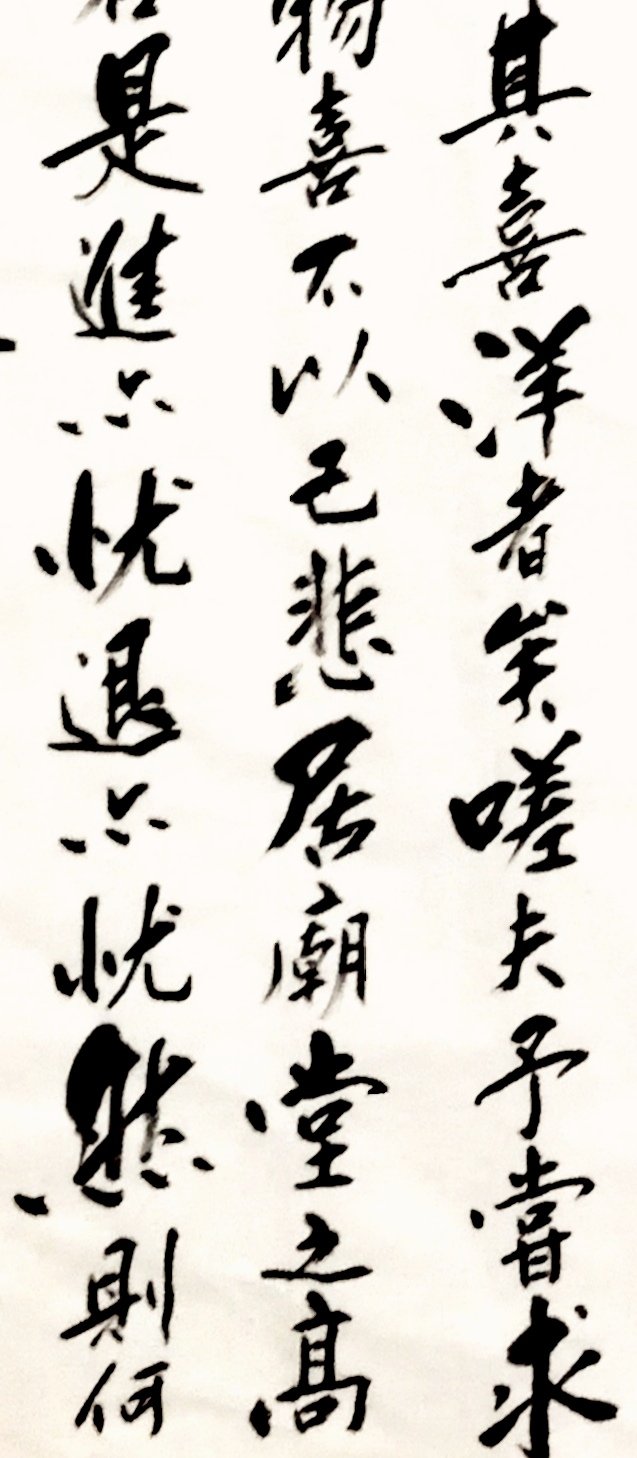 其喜洋者矣嗟夫予嘗求
物喜不以己悲居廟堂之高
是進亦憂退亦憂然則何